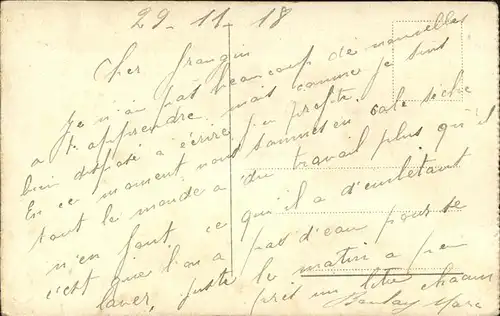 29-11-18
Cher frangin
Je n'ai pas beaucoup de nouvelles
a t'apprendre mais comme je suis
bien disposé a écrire j'en profite.
En ce moment nous sommes en cale sèche
tout le monde a du travail plus qu'il
n'en faut ce qu'il a d'embêtant
c'est que l'on a pas d'eau pour se
laver, juste le matin a peu
près un litre chacun
Marc